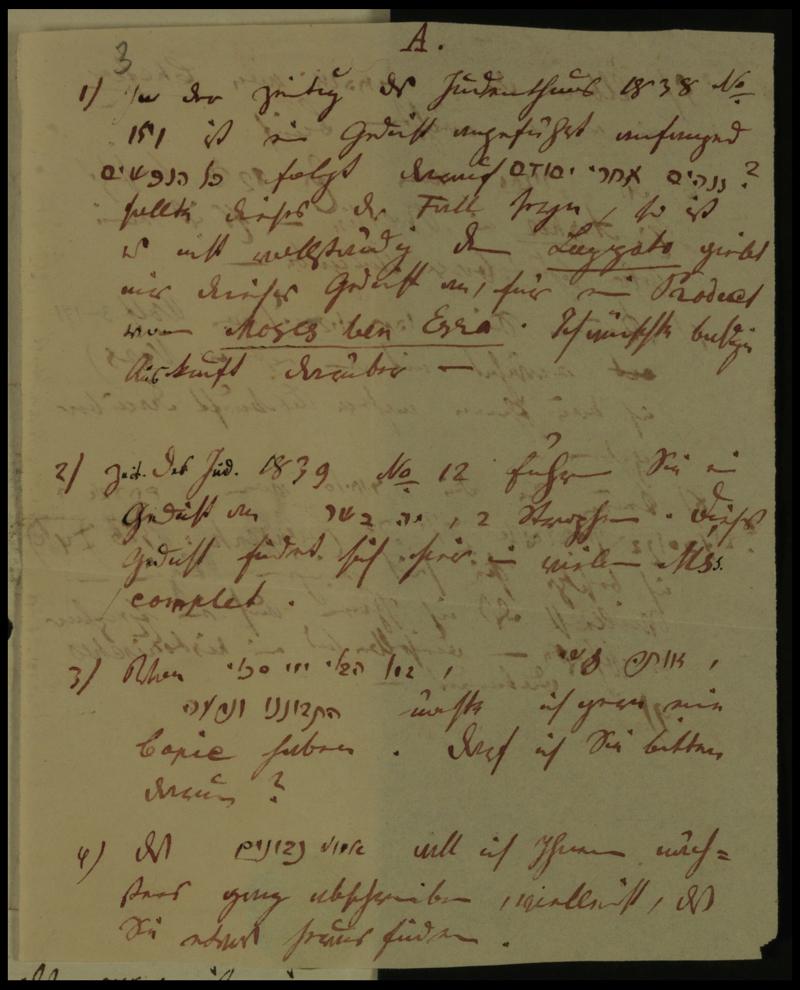 3 A.
1) In der Zeitung des Judenthums 1838 No
151 ist ein Gedicht angeführt anfangend
כל הנפשים folgt darauf נגהים אחרי יסודם?
sollte dieses der Fall seyn, so ist
es nicht vollständig denn Luzzato giebt
mir dieses Gedicht an, für ein Product
von Moses ben Esra. Ich wünschte
Auskunft darüber —
2) Zeit. des Jud. 1839 No 12 führen Sie ein
Gedicht an, 2 Strophen. Dieses
Gedicht findet sich hier in vielen Mss.
complet.
3) Von
התבוננו möchte ich gern eine
Copie haben. Darf ich Sie bitten
darum?
4) Das נבונים will ich Ihnen näch=
stens ganz abschreiben, vielleicht, daß
Sie etwas heraus finden.